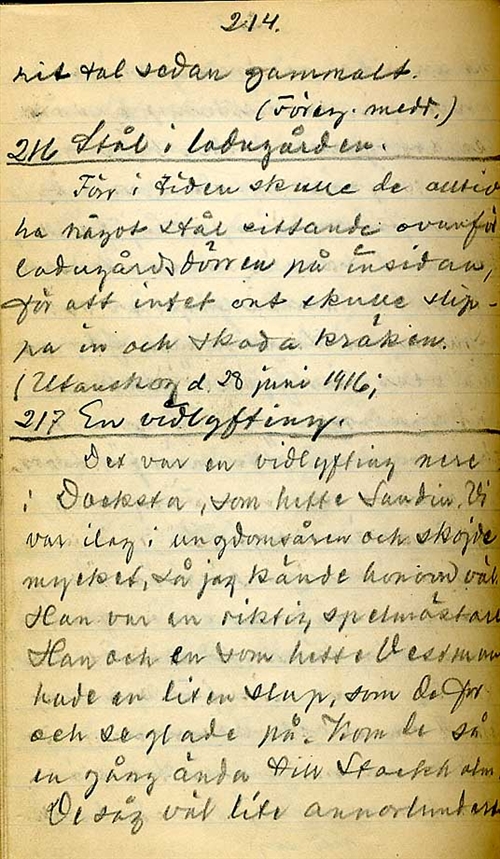 214.
rit tal sedan gammalt.
(Föreg. medd.)
216 Stål i ladugården.
Förr i tiden skulle de alltid
ha något stål sittande ovanför
ladugårdsdörren på insidan,
för att intet ont skulle slip-
pa in och skada kräken.
(Utanskog d. 28 juni 1916;
217 En vidlyfting.
Det var en vidlyfting nere
i Docksta, som hette Sundin. Vi
var ilag i ungdomsåren och skojde
mycket, så jag kände honom väl.
Han var en riktig spelmästare
Han och en som hette Vestman
hade en liten slup, som de for
och seglade på. Kom de så
en gång ända till Stockholm
De såg väl lite annorlunda